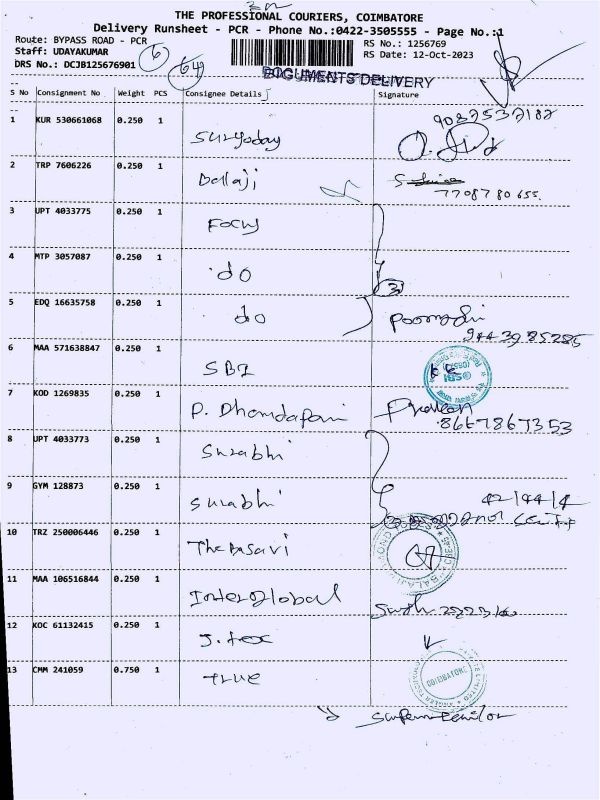 THE PROFESSIONAL COURIERS, COIMBATORE
Delivery Runsheet - PCR - Phone No.:0422-3505555 - Page No.:1
Route: BYPASS ROAD - PCR
Staff: UDAYAKUMAR
DRS No.: DCJB125676901
6
64
RS No.: 1256769
RS Date: 12-Oct-2023
DOCUMENTS DELIVERY
S No Consignment No Weight PCS Consignee Details Signature
9087537182
1 KUR 530661068 0.250 1 Suryoday
2 TRP 7606226 0.250 1 Ballaji
7708780655
3 UPT 4033775 0.250 1 Focus
4 MTP 3057087 0.250 1 do
3
5 EDQ 16635758 0.250 1 do
9443985285
6 MAA 571638847 0.250 1 SBI
SBI
7 KOD 1269835 0.250 1 P. Dhandapani
8667867353
8 UPT 4033773 0.250 1 Surabhi
9 GYM 128873 0.250 1 Surabhi
42/44/4
10 TRZ 250006446 0.250 1
11 MAA 106516844 0.250 1 Interglobal
12 KOC 61132415 0.250 1 J. tex
13 CMM 241059 0.750 1 true
COIMBATORE